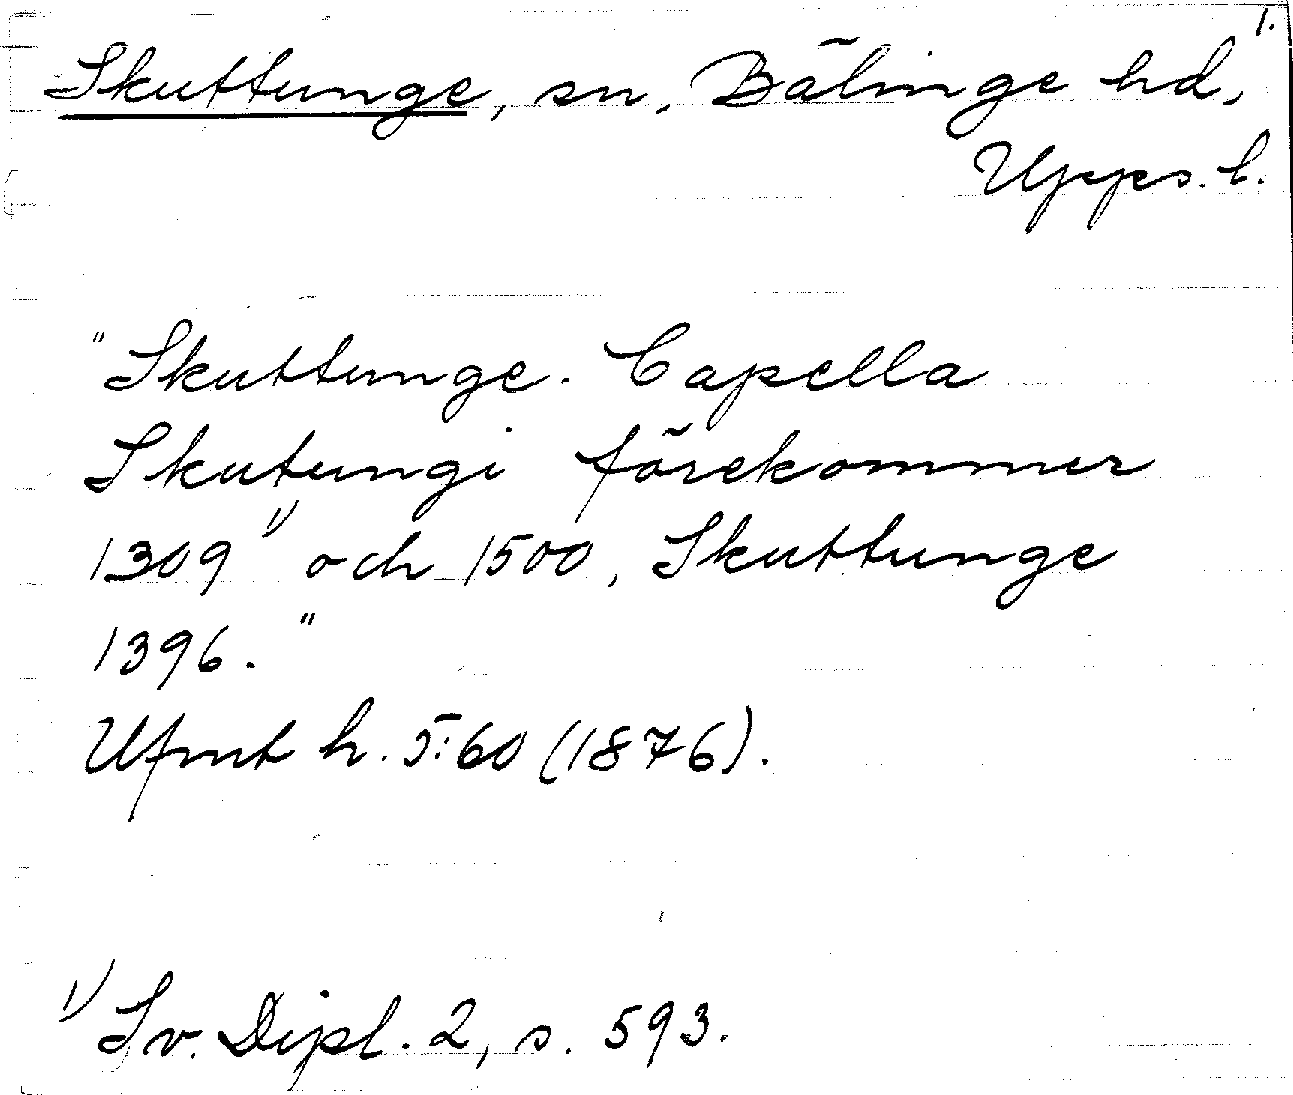 1.
Skuttunge, sn, Bälinge hd,
Upps. l.
"Skuttunge. Capella
Skutungi förekommer
1309¹⁾ och 1500, Skuttunge
1396."
Ufmt h. 5:60 (1876).
¹⁾ Sv. Dipl. 2, s. 593.